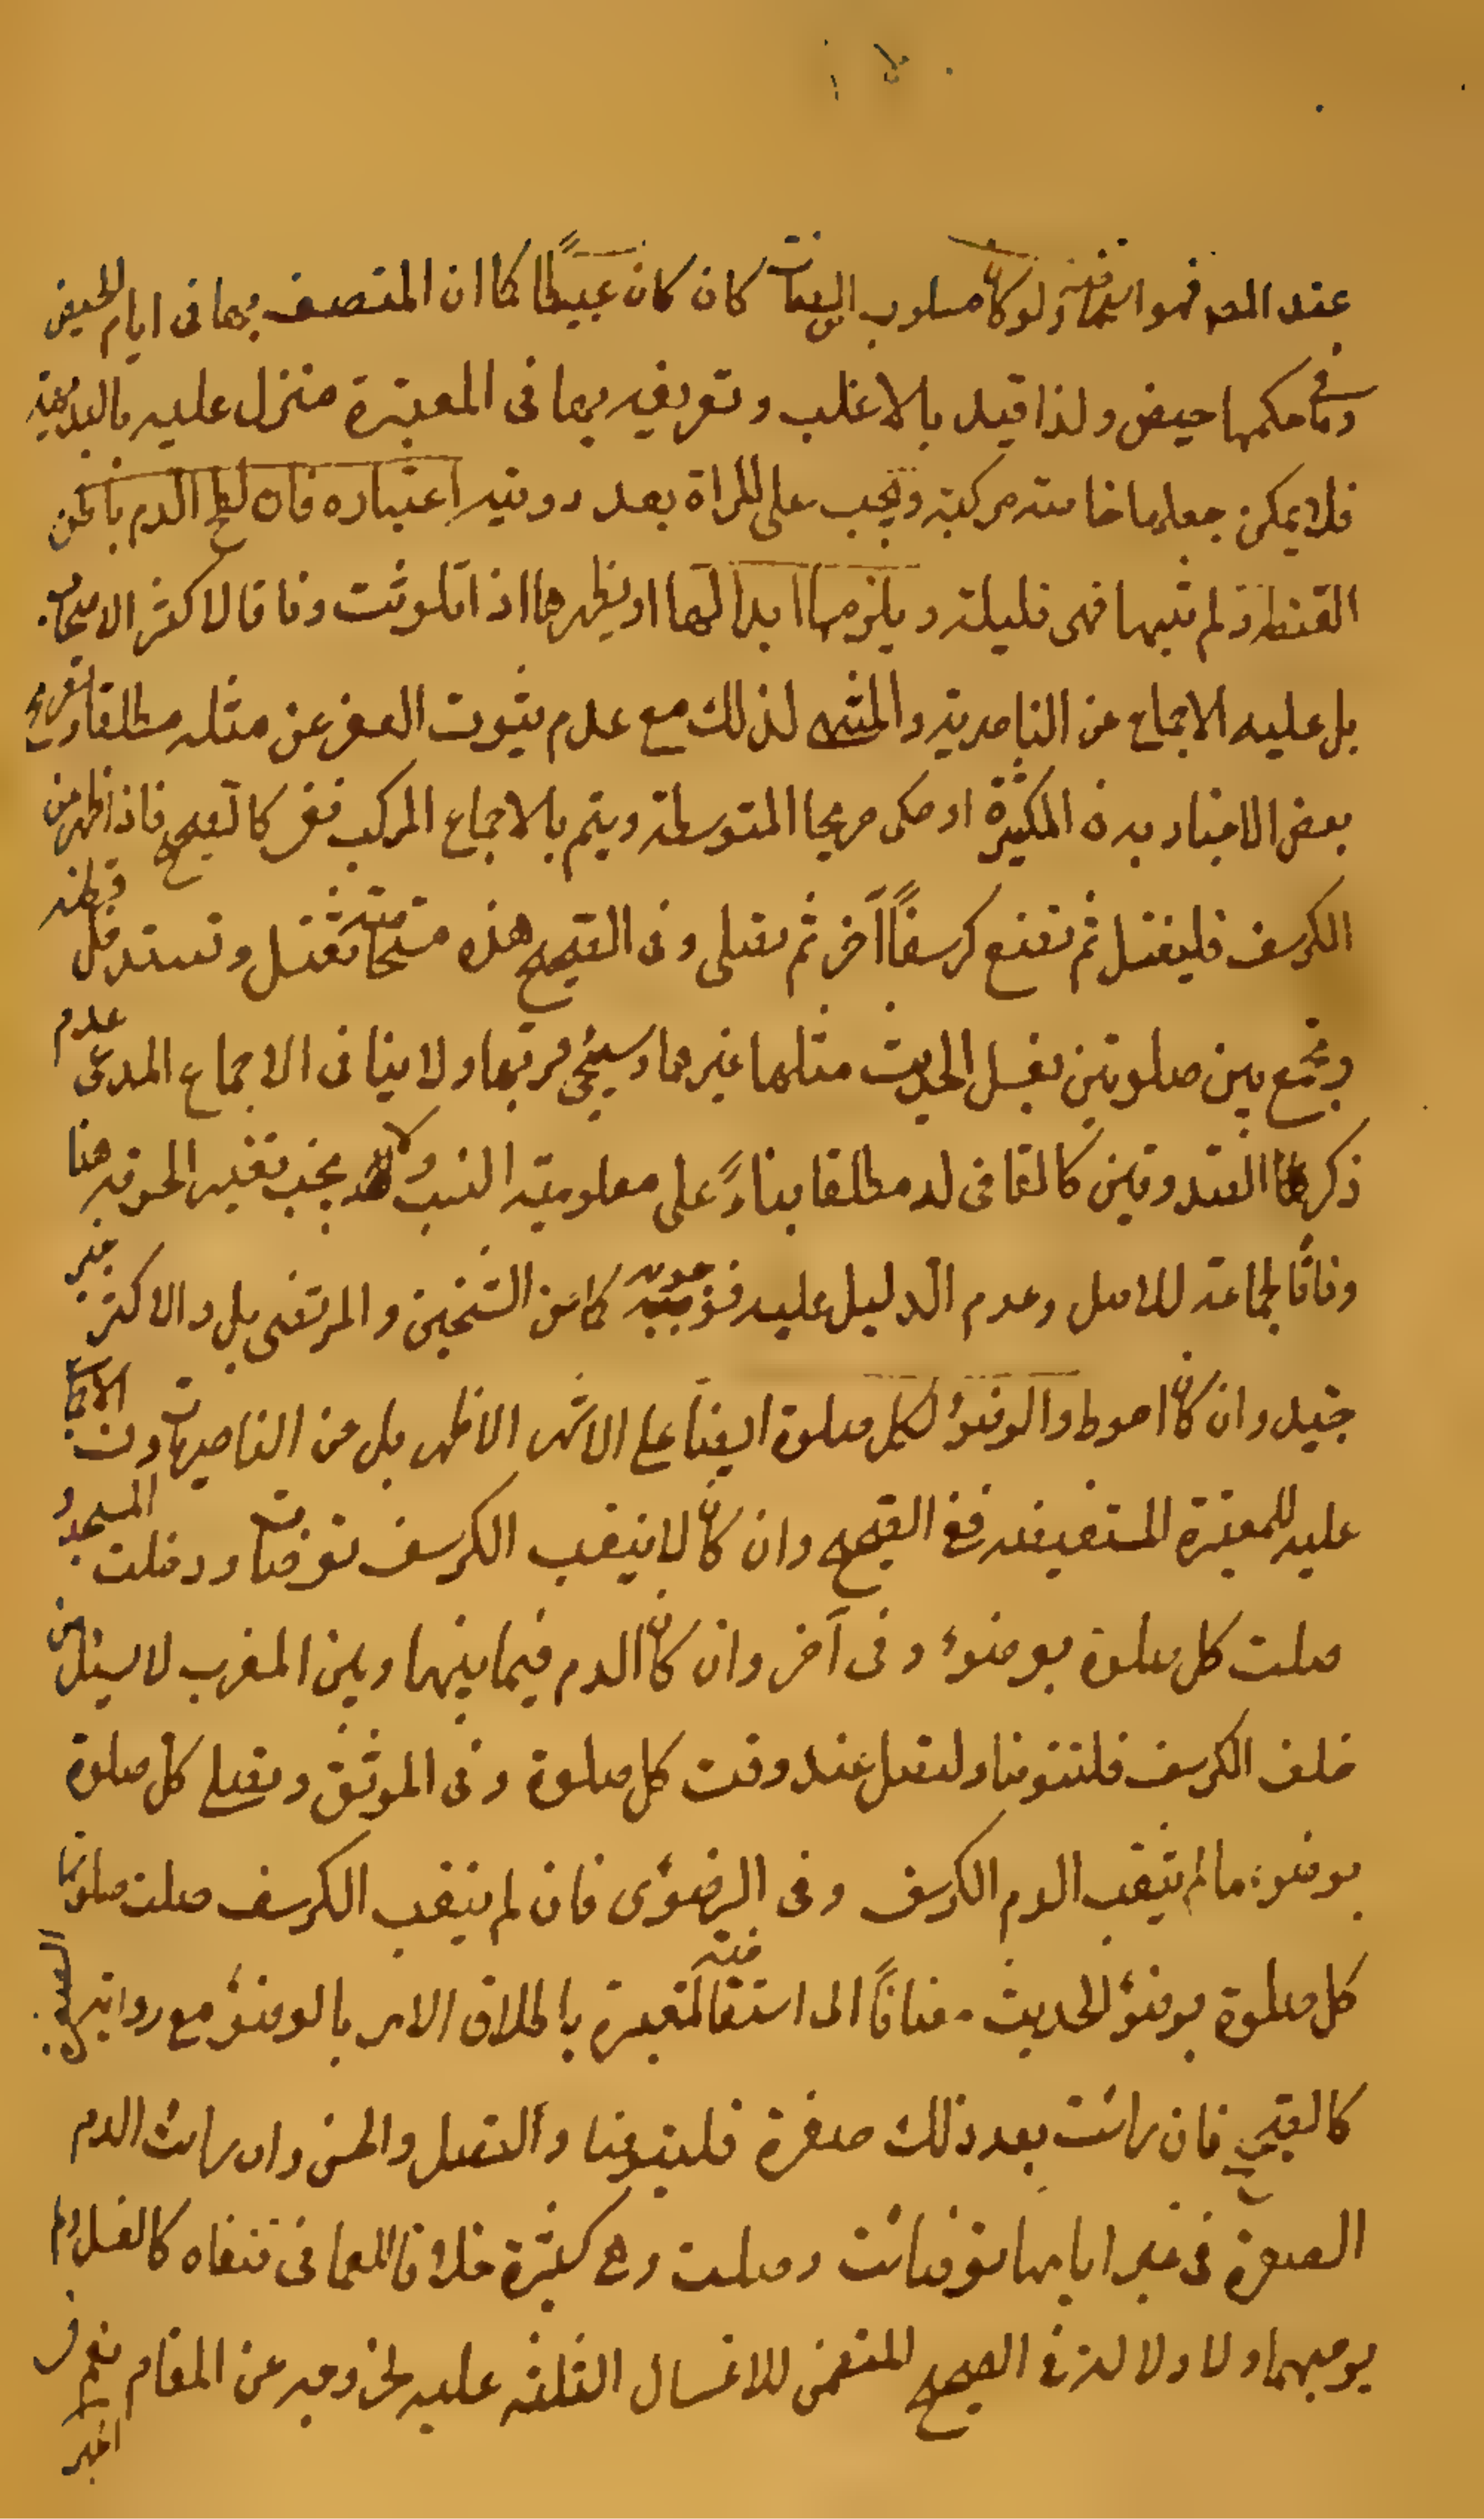 عند المص فهو استحاضة ولو كان مسلوب الصفات كان كان عبيطا كما ان المتصف بها فى ايام الحيض
وما فى حكمها حيض ولذا قيد بالاغلب وتعريفه بها فى المعتبرة منزل عليه بالبديهة
فلا يمكن جعلها خاصة مركبة ويجب على المراة بعد رويته اعتباره فان لطخ الدم باطن
القطنة ولم يثقبها فهى قليلة ويلزمها ابدالها او تطهيرها اذا تلوثت وفاقا لاكثر الاصحاب
بل عليه الاجماع عن الناصرية والمنتهى لذلك مع عدم ثبوت العفو عن مثله مطلقا
بعض الاخبار بهذه الكثيرة او حكى صريحا المتوسطة ويتم بالاجماع المركب ففى كا لصحيح فاذا ظهر من
الكرسف فليغتسل ثم تضع كرسفاً آخر ثم تصلى وفى الصحيح هذه مستحاضة تغتسل وتستدخل قطنة
وتجمع بين صلوتين بغسل الحديث مثلها غيرهما وسيجئ قربها ولا ينافى الاجماع المدعى عدم
ذكر الصدوقين كالقاضى له مطلقا بناءً على معلومية النسب ولا يجب تغيير الخرقة هنا
وفاقًا لجماعة للاصل وعدم الدليل عليه كما عن الشيخين والمرتضى بل والاكثر غير
جيد وان كان احوط والوضوء لكل صلوة ايضاً على الاشهر الاظهر بل عن الناصريات
عليه للمعتبرة المستفيضة ففى الصحيح وان كان لا يثقب الكرسف توضات ودخلت المسجد و
صلت كل صلوة بوضوء وفى آخر وان كان الدم فيما بينها وبين المغرب لا يسيل من
خلف الكرسف فلتتوضا ولتصل عند وقت كل صلوة وفى الموثق وتصلى كل صلوة
بوضوء ما لم يثقب الدم الكرسف وفى الرضوى فان لم يثقب الكرسف صلت صلوتها
كل صلوة بوضوء الحديث مضافًا الى استفاضة المعتبرة باطلاق الامر بالوضوء مع رواية الصفرة
كالصحيح فان رات بعد ذلك صفرة فلتتوضا ولتصل والحسن وان رات الدم
الصفرة فى غير ايامها توضات وصلت وهى كثيرة خلافا للعمانى فنفاه كالغسل ولم
يوجبهما ولا دلالة فى الصحيح المتضمن للاغسال الثلثه عليه لخروجه عن المقام نعم فى
الخبر